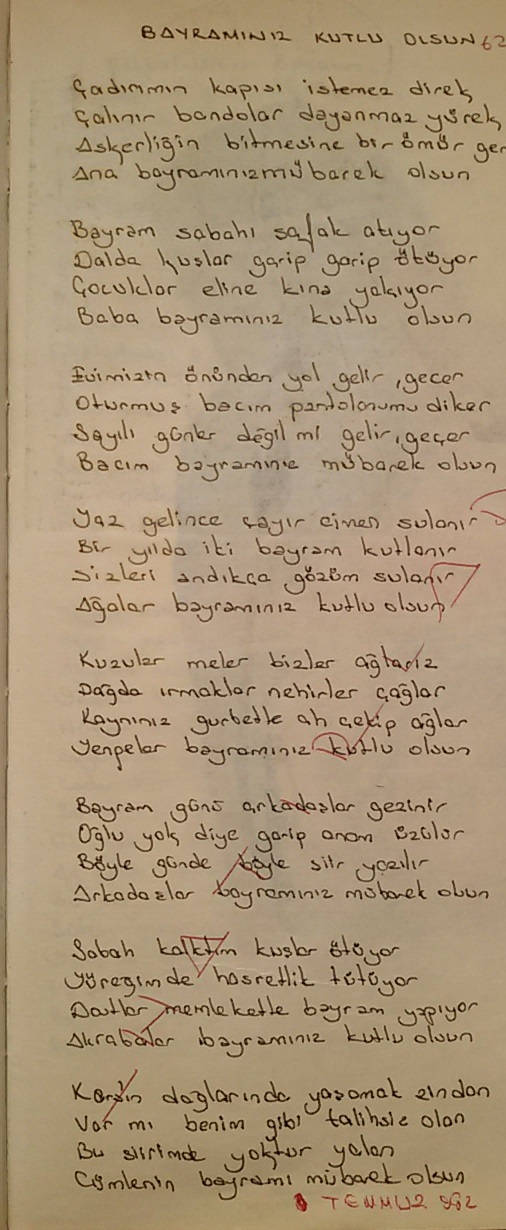 BAYRAMINIZ KUTLU OLSUN 62
Çadırımın kapısı istemez direk
Çalınır bandolar dayanmaz yürek
Askerliğin bitmesine bir ömür ger
Ana bayramınız mübarek olsun
Bayram sabahı şafak atıyor
Dalda kuşlar garip garip ötüyor
Çocuklar eline kına yakıyor
Baba bayramınız kutlu olsun
Evimizin önünden yol gelir, geçer
Oturmuş bacım pantolonumu diker
Sayılı günler değil mi gelir, geçer
Bacım bayramınız mübarek olsun
Yaz gelince çayır çimen sulanır
Bir yılda iki bayram kutlanır
Sizleri andıkça gözüm sulanır
Ağalar bayramınız kutlu olsun
Kuzular meler bizler ağlarız
Dağda ırmaklar nehirler çağlar
Kaynınız gurbette ah çekip ağlar
Yengeler bayramınız kutlu olsun
Bayram günü arkadaşlar gezinir
Oğlu yok diye garip anam üzülür
Böyle günde böyle şiir yazılır
Arkadaşlar bayramınız mübarek olsun
Sabah kalktım kuşlar ötüyor
Yüreğimde hasretlik tütüyor
Dostlar memlekette bayram yapıyor
Akrabalar bayramınız kutlu olsun
Kars'ın dağlarında yaşamak zindan
Var mı benim gibi talihsiz olan
Bu şiirimde yoktur yalan
Cümlenin bayramı mübarek olsun
TEMMUZ 982